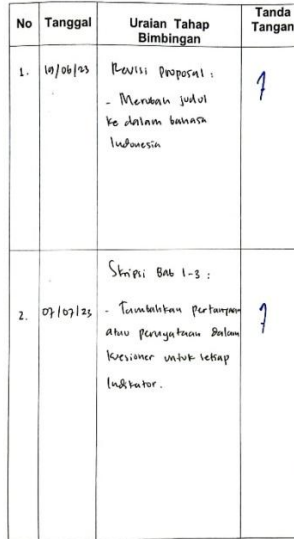 No Tanggal Uraian Tahap Bimbingan Tanda Tangan
1. 19/06/23 Revisi Proposal :
- Merubah judul
ke dalam bahasa
Indonesia
Skripsi Bab 1-3 :
2. 07/07/23 - Tambahkan pertanyaan
atau pernyataan dalam
kuesioner untuk setiap
Indikator.